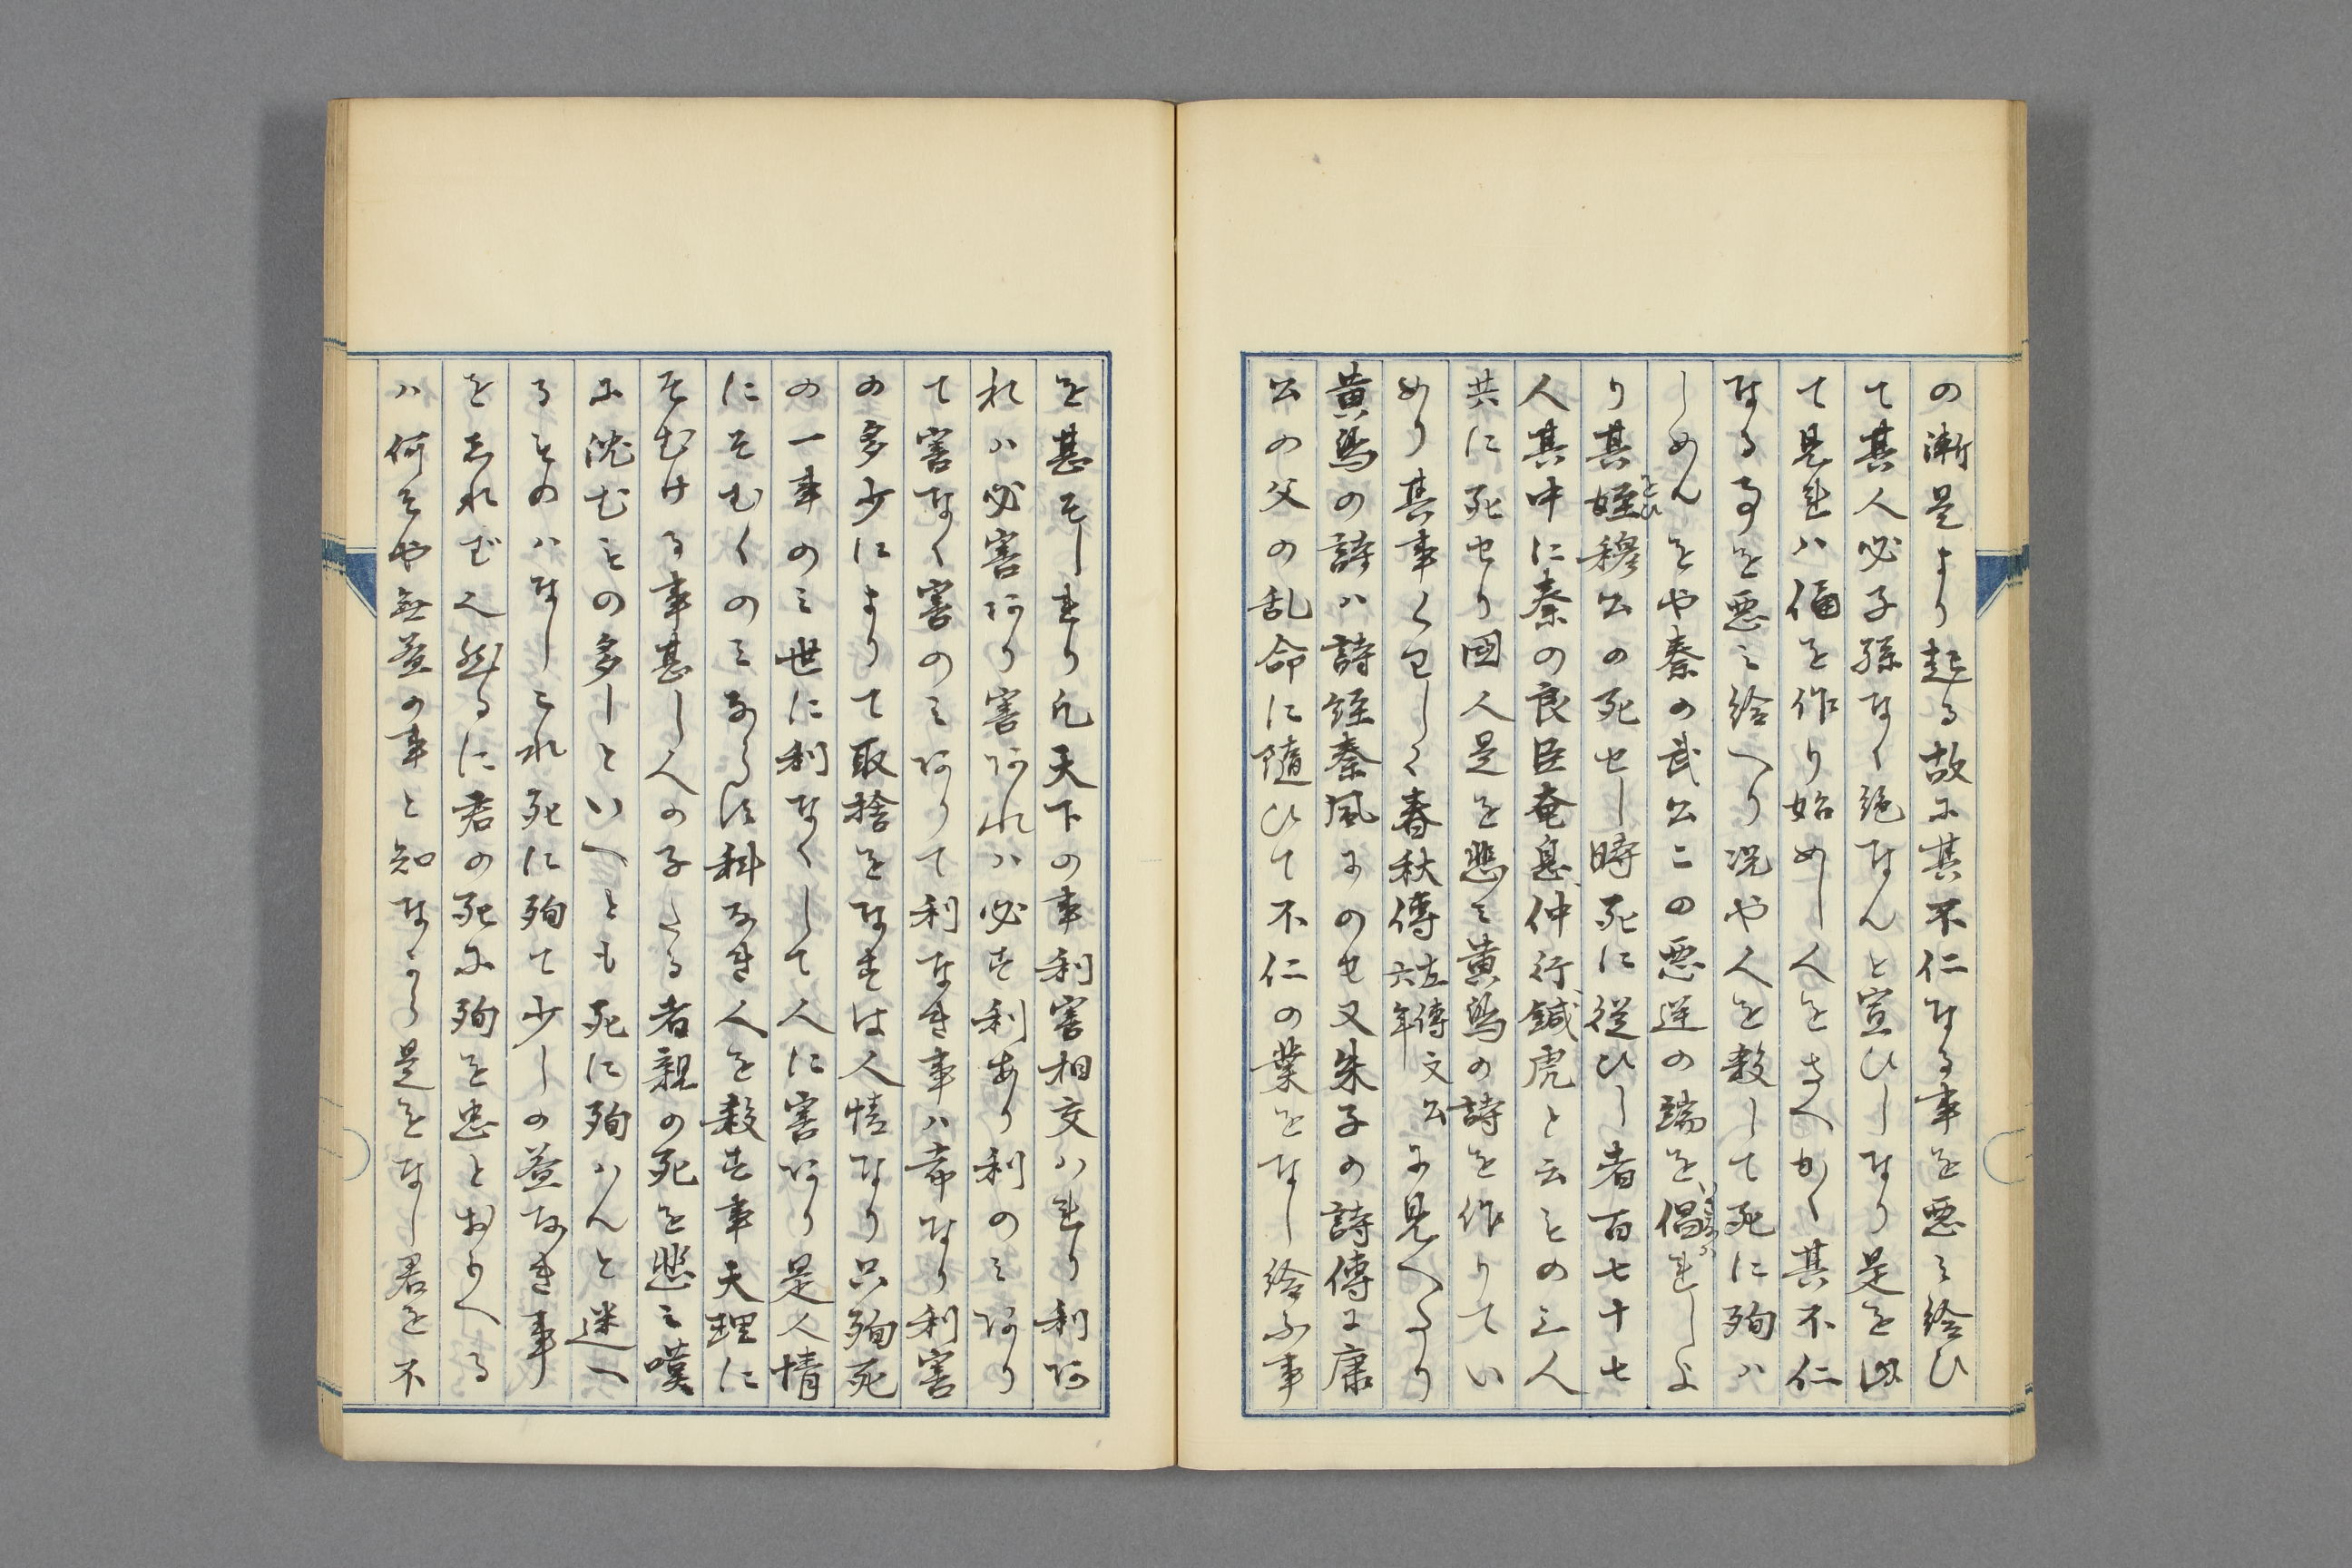 の漸是より起る故に其不仁なる事を悪ミ給ひ
て其人必子孫なく絶なんと宣ひしなり是を以
て見れハ俑を作り始めし人をさへかく其不仁
なる事を悪ミ給へり况や人を殺して死に殉ハ
しめんをや秦の武公この悪逆の端を倡れしよ
り其姪穆公の死せし時死に従ひし者百七十七
人其中に秦の良臣奄息仲行鍼虎と云もの三人
共に死せり国人是を悲ミ黄鳥の詩を作りてい
めり其事くわしく春秋傳左傳文公六年に見へたり
黄鳥の詩ハ詩経秦風にのせ又朱子の詩傳に康
公の父の乱命に随ひて不仁の業をなし給ふ事
を甚そしれり凡天下の事利害相交ハれり利あ
れハ必害あり害あれハ必す利あり利のミあり
て害なく害のミありて利なき事ハ希なり利害
の多少によりて取捨をなすは人情なり只殉死
の一事のミ世に利なくして人に害あり是人情
にそむくのミならす科なき人を殺す事天理に
そむける事甚し人の子たる者親の死を悲ミ嘆
に沈むもの多しといへとも死に殉ハんと迷へ
るものハなしこれ死に殉て少しの益なき事
をしれバ也然るに君の死に殉を忠とおもへる
ハ何そや無益の事と知なから是をなし君を不